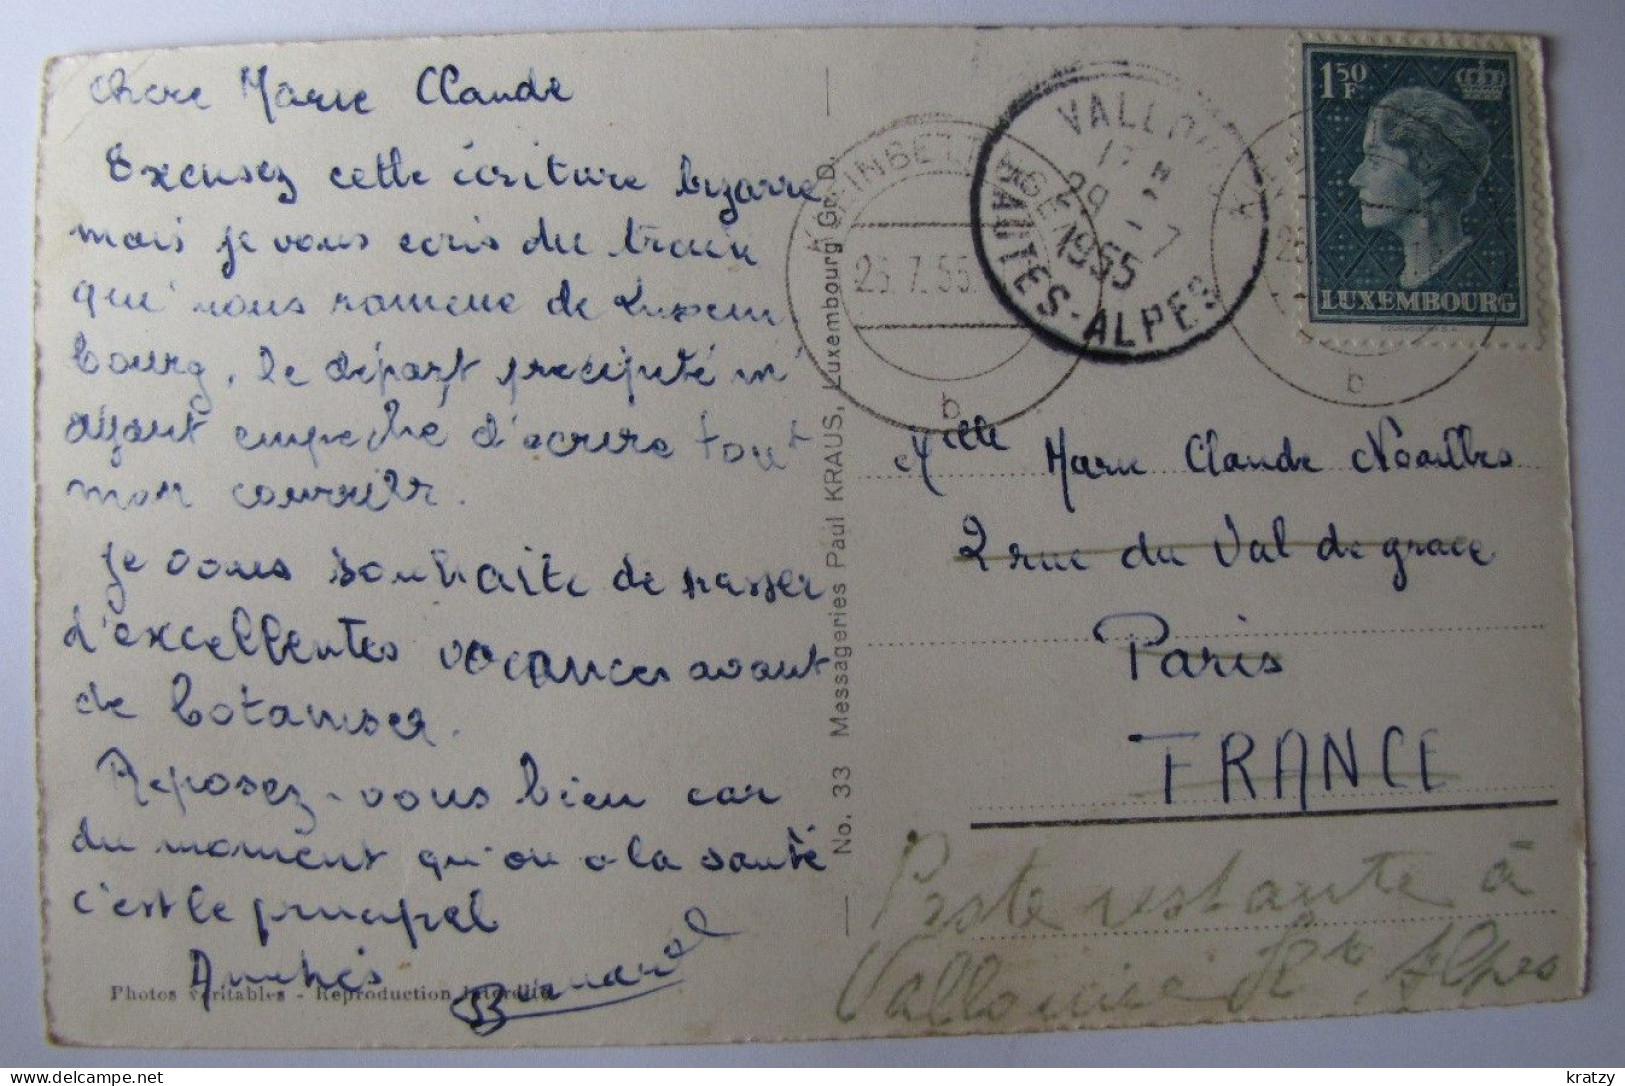 chere Marie Claude
Excusez cette écriture bizarre
mais je vous ecris du train
qui nous ramene de Luxem
bourg, le départ precipité m'
ayant empeché d'ecrire tout
mon courrier.
Je vous souhaite de passer
d'excellentes vacances avant
de botaniser.
Reposez-vous bien car
du moment qu'on a la santé
c'est le principal
Amitiés
Bernard
Photos véritables - Reproduction interdite
No. 33 Messageries Paul KRAUS, Luxembourg Gr. D.
KLEINBETTINGEN
26.7.55
b
VALLOUISE
29 7
1955
HAUTES-ALPES
1 50 F
LUXEMBOURG
b
Melle Marie Claude Noailles
2 rue du Val de grace
Paris
FRANCE
Poste restante à
Vallouise Htes Alpes
kratzy